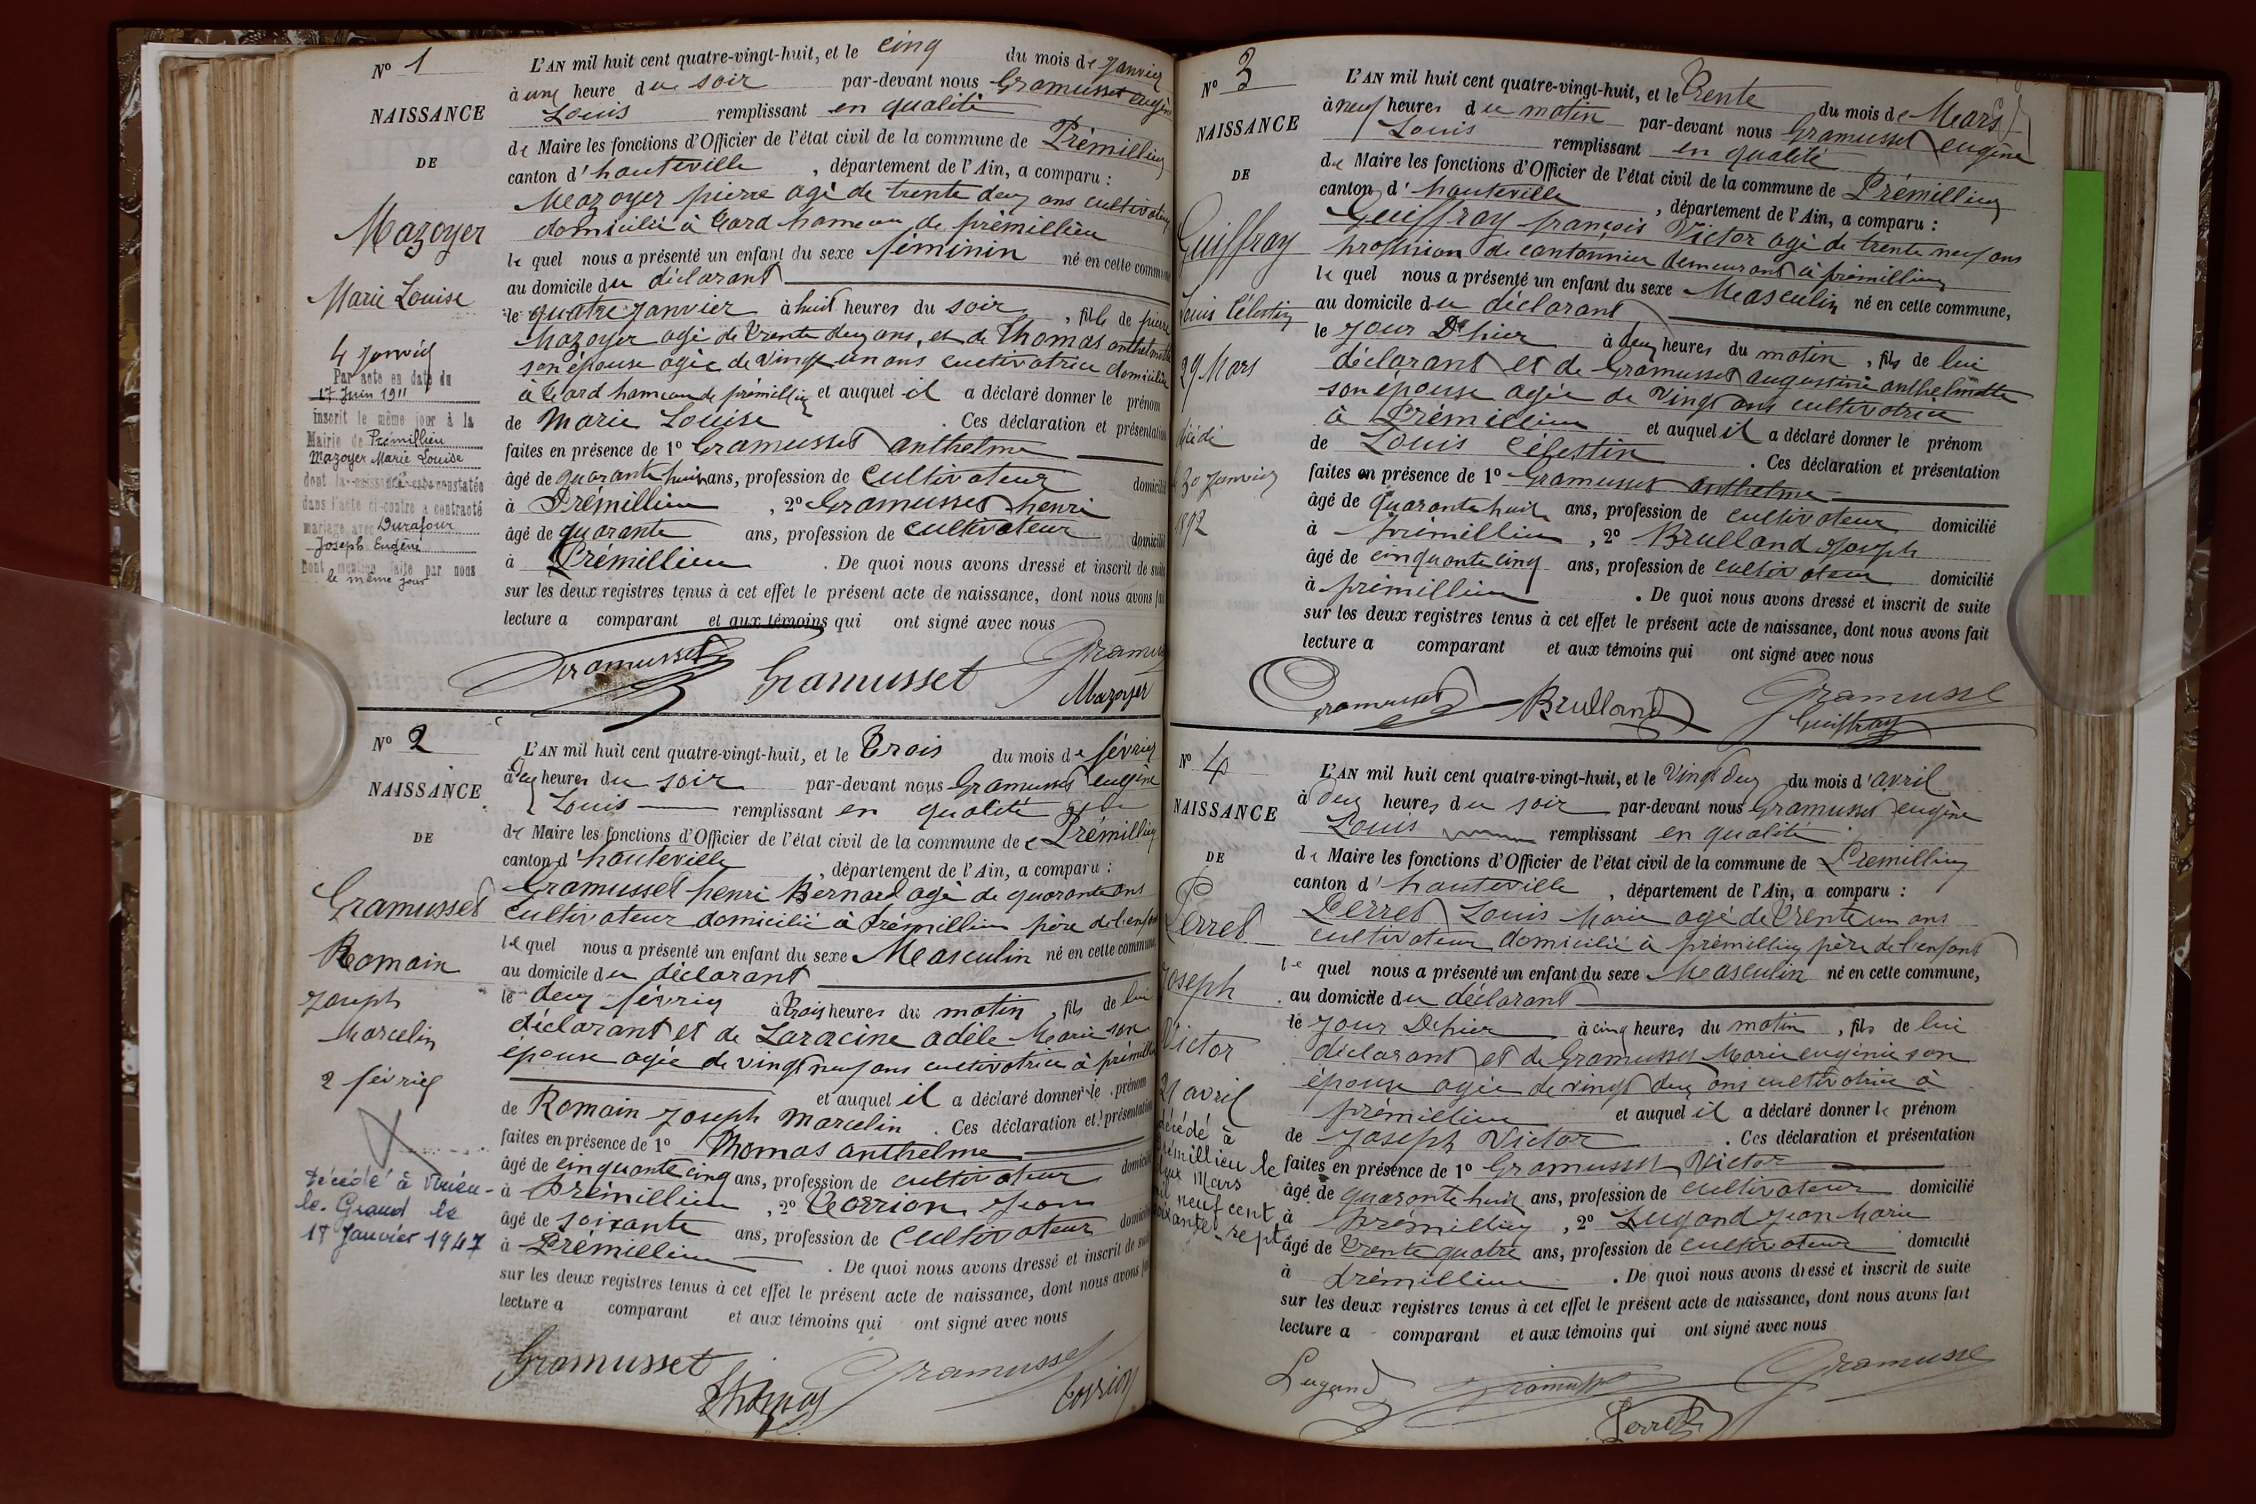 N° 1
NAISSANCE
DE
Mazoyer
Marie Louise
4 janvier
Par acte en date du
17 Juin 1911
inscrit le même jour à la
Mairie de Prémillieu
Mazoyer Marie Louise
dont la naissance est constatée
dans l'acte ci-contre a contracté
mariage avec Durafour
Joseph Eugène
Dont mention faite par nous
le même jour
L'AN mil huit cent quatre-vingt-huit, et le cinq du mois de janvier
à une heure du soir par-devant nous Gramusset eugène
Louis remplissant en qualité
de Maire les fonctions d'Officier de l'état civil de la commune de Prémillieu
canton d'hauteville, département de l'Ain, a comparu :
Mazoyer pierre agé de trente deux ans cultivateur
domicilié à hameau de prémillieu
le quel nous a présenté un enfant du sexe féminin né en cette commune
au domicile du déclarant
le quatre janvier à huit heures du soir, fille de pierre
Mazoyer agé de trente deux ans, et de Thomas anthelmette
son épouse agée de vingt un ans cultivatrice domiciliée
à hameau de prémillieu et auquel il a déclaré donner le prénom
de Marie Louise. Ces déclaration et présentation
faites en présence de 1° Gramusset anthelme
âgé de quarante huit ans, profession de cultivateur domicilié
à Prémillieu, 2° Gramusset henri
âgé de quarante ans, profession de cultivateur domicilié
à Prémillieu. De quoi nous avons dressé et inscrit de suite
sur les deux registres tenus à cet effet le présent acte de naissance, dont nous avons fait
lecture a comparant et aux témoins qui ont signé avec nous
Gramusset Gramusset Gramusset
Mazoyer
N° 2
NAISSANCE
DE
Gramusset
Romain
Joseph
Marcelin
2 février
Décédé à Virieu-
le-Grand le
18 Janvier 1947
L'AN mil huit cent quatre-vingt-huit, et le Trois du mois de février
à deux heures du soir par-devant nous Gramusset eugène
Louis remplissant en qualité
de Maire les fonctions d'Officier de l'état civil de la commune de Prémillieu
canton d'hauteville, département de l'Ain, a comparu :
Gramusset henri Bernard agé de quarante ans
cultivateur domicilié à Prémillieu père de l'enfant
le quel nous a présenté un enfant du sexe Masculin né en cette commune,
au domicile du déclarant
le deux février à trois heures du matin, fils de lui
déclarant et de Laracine adèle Marie son
épouse agée de vingt neuf ans cultivatrice à prémillieu
et auquel il a déclaré donner le prénom
de Romain Joseph Marcelin. Ces déclaration et présentation
faites en présence de 1° Thomas anthelme
âgé de cinquante cinq ans, profession de cultivateur domicilié
à Prémillieu, 2° Jean
âgé de soixante ans, profession de cultivateur domicilié
à Prémillieu. De quoi nous avons dressé et inscrit de suite
sur les deux registres tenus à cet effet le présent acte de naissance, dont nous avons fait
lecture a comparant et aux témoins qui ont signé avec nous
Gramusset Gramusset
Thomas
N° 3
NAISSANCE
DE
Guiffray
Louis Célestin
29 Mars
décédé
30 janvier
1892
L'AN mil huit cent quatre-vingt-huit, et le Trente du mois de Mars
à neuf heures du matin par-devant nous Gramusset eugène
Louis remplissant en qualité
de Maire les fonctions d'Officier de l'état civil de la commune de Prémillieu
canton d'hauteville, département de l'Ain, a comparu :
Guiffray françois Victor agé de trente neuf ans
profession de cantonnier demeurant à prémillieu
le quel nous a présenté un enfant du sexe Masculin né en cette commune,
au domicile du déclarant
le jour D'hier à deux heures du matin, fils de lui
déclarant et de Gramusset augustine anthelmette
son épouse agée de vingt ans cultivatrice
à Prémillieu et auquel il a déclaré donner le prénom
de Louis Célestin. Ces déclaration et présentation
faites en présence de 1° Gramusset anthelme
âgé de quarante huit ans, profession de cultivateur domicilié
à prémillieu, 2° Brulland Joseph
âgé de cinquante cinq ans, profession de cultivateur domicilié
à prémillieu. De quoi nous avons dressé et inscrit de suite
sur les deux registres tenus à cet effet le présent acte de naissance, dont nous avons fait
lecture a comparant et aux témoins qui ont signé avec nous
Gramusset Brulland Gramusset
Guiffray
N° 4
NAISSANCE
DE
Perret
Joseph
Victor
21 avril
décédé à
Prémillieu le
deux Mars
mil neuf cent
soixante-sept
L'AN mil huit cent quatre-vingt-huit, et le Vingt deux du mois d'avril
à deux heures du soir par-devant nous Gramusset eugène
Louis remplissant en qualité
de Maire les fonctions d'Officier de l'état civil de la commune de Prémillieu
canton d'hauteville, département de l'Ain, a comparu :
Perret Louis Marie agé de trente un ans
cultivateur domicilié à prémillieu père de l'enfant
le quel nous a présenté un enfant du sexe Masculin né en cette commune,
au domicile du déclarant
le jour D'hier à cinq heures du matin, fils de lui
déclarant et de Gramusset Marie eugénie son
épouse agée de vingt deux ans cultivatrice à
prémillieu et auquel il a déclaré donner le prénom
de Joseph Victor. Ces déclaration et présentation
faites en présence de 1° Gramusset Victor
âgé de quarante huit ans, profession de cultivateur domicilié
à prémillieu, 2° Lugand Jean Marie
âgé de trente quatre ans, profession de cultivateur domicilié
à prémillieu. De quoi nous avons dressé et inscrit de suite
sur les deux registres tenus à cet effet le présent acte de naissance, dont nous avons fait
lecture a comparant et aux témoins qui ont signé avec nous
Lugand Gramusset Gramusset
Perret